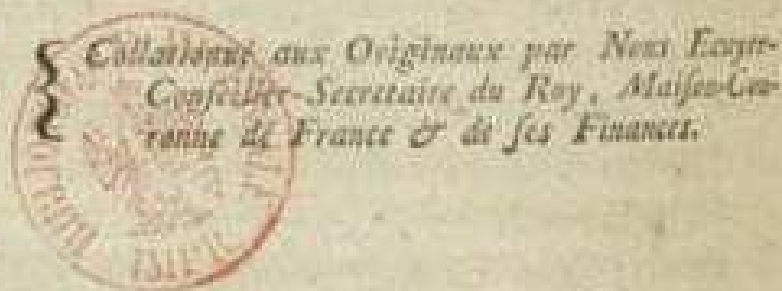 Collationné aux Originaux par Nous Ecuyer-
Conseiller-Secretaire du Roy, Maison-Cou-
ronne de France & de ses Finances.